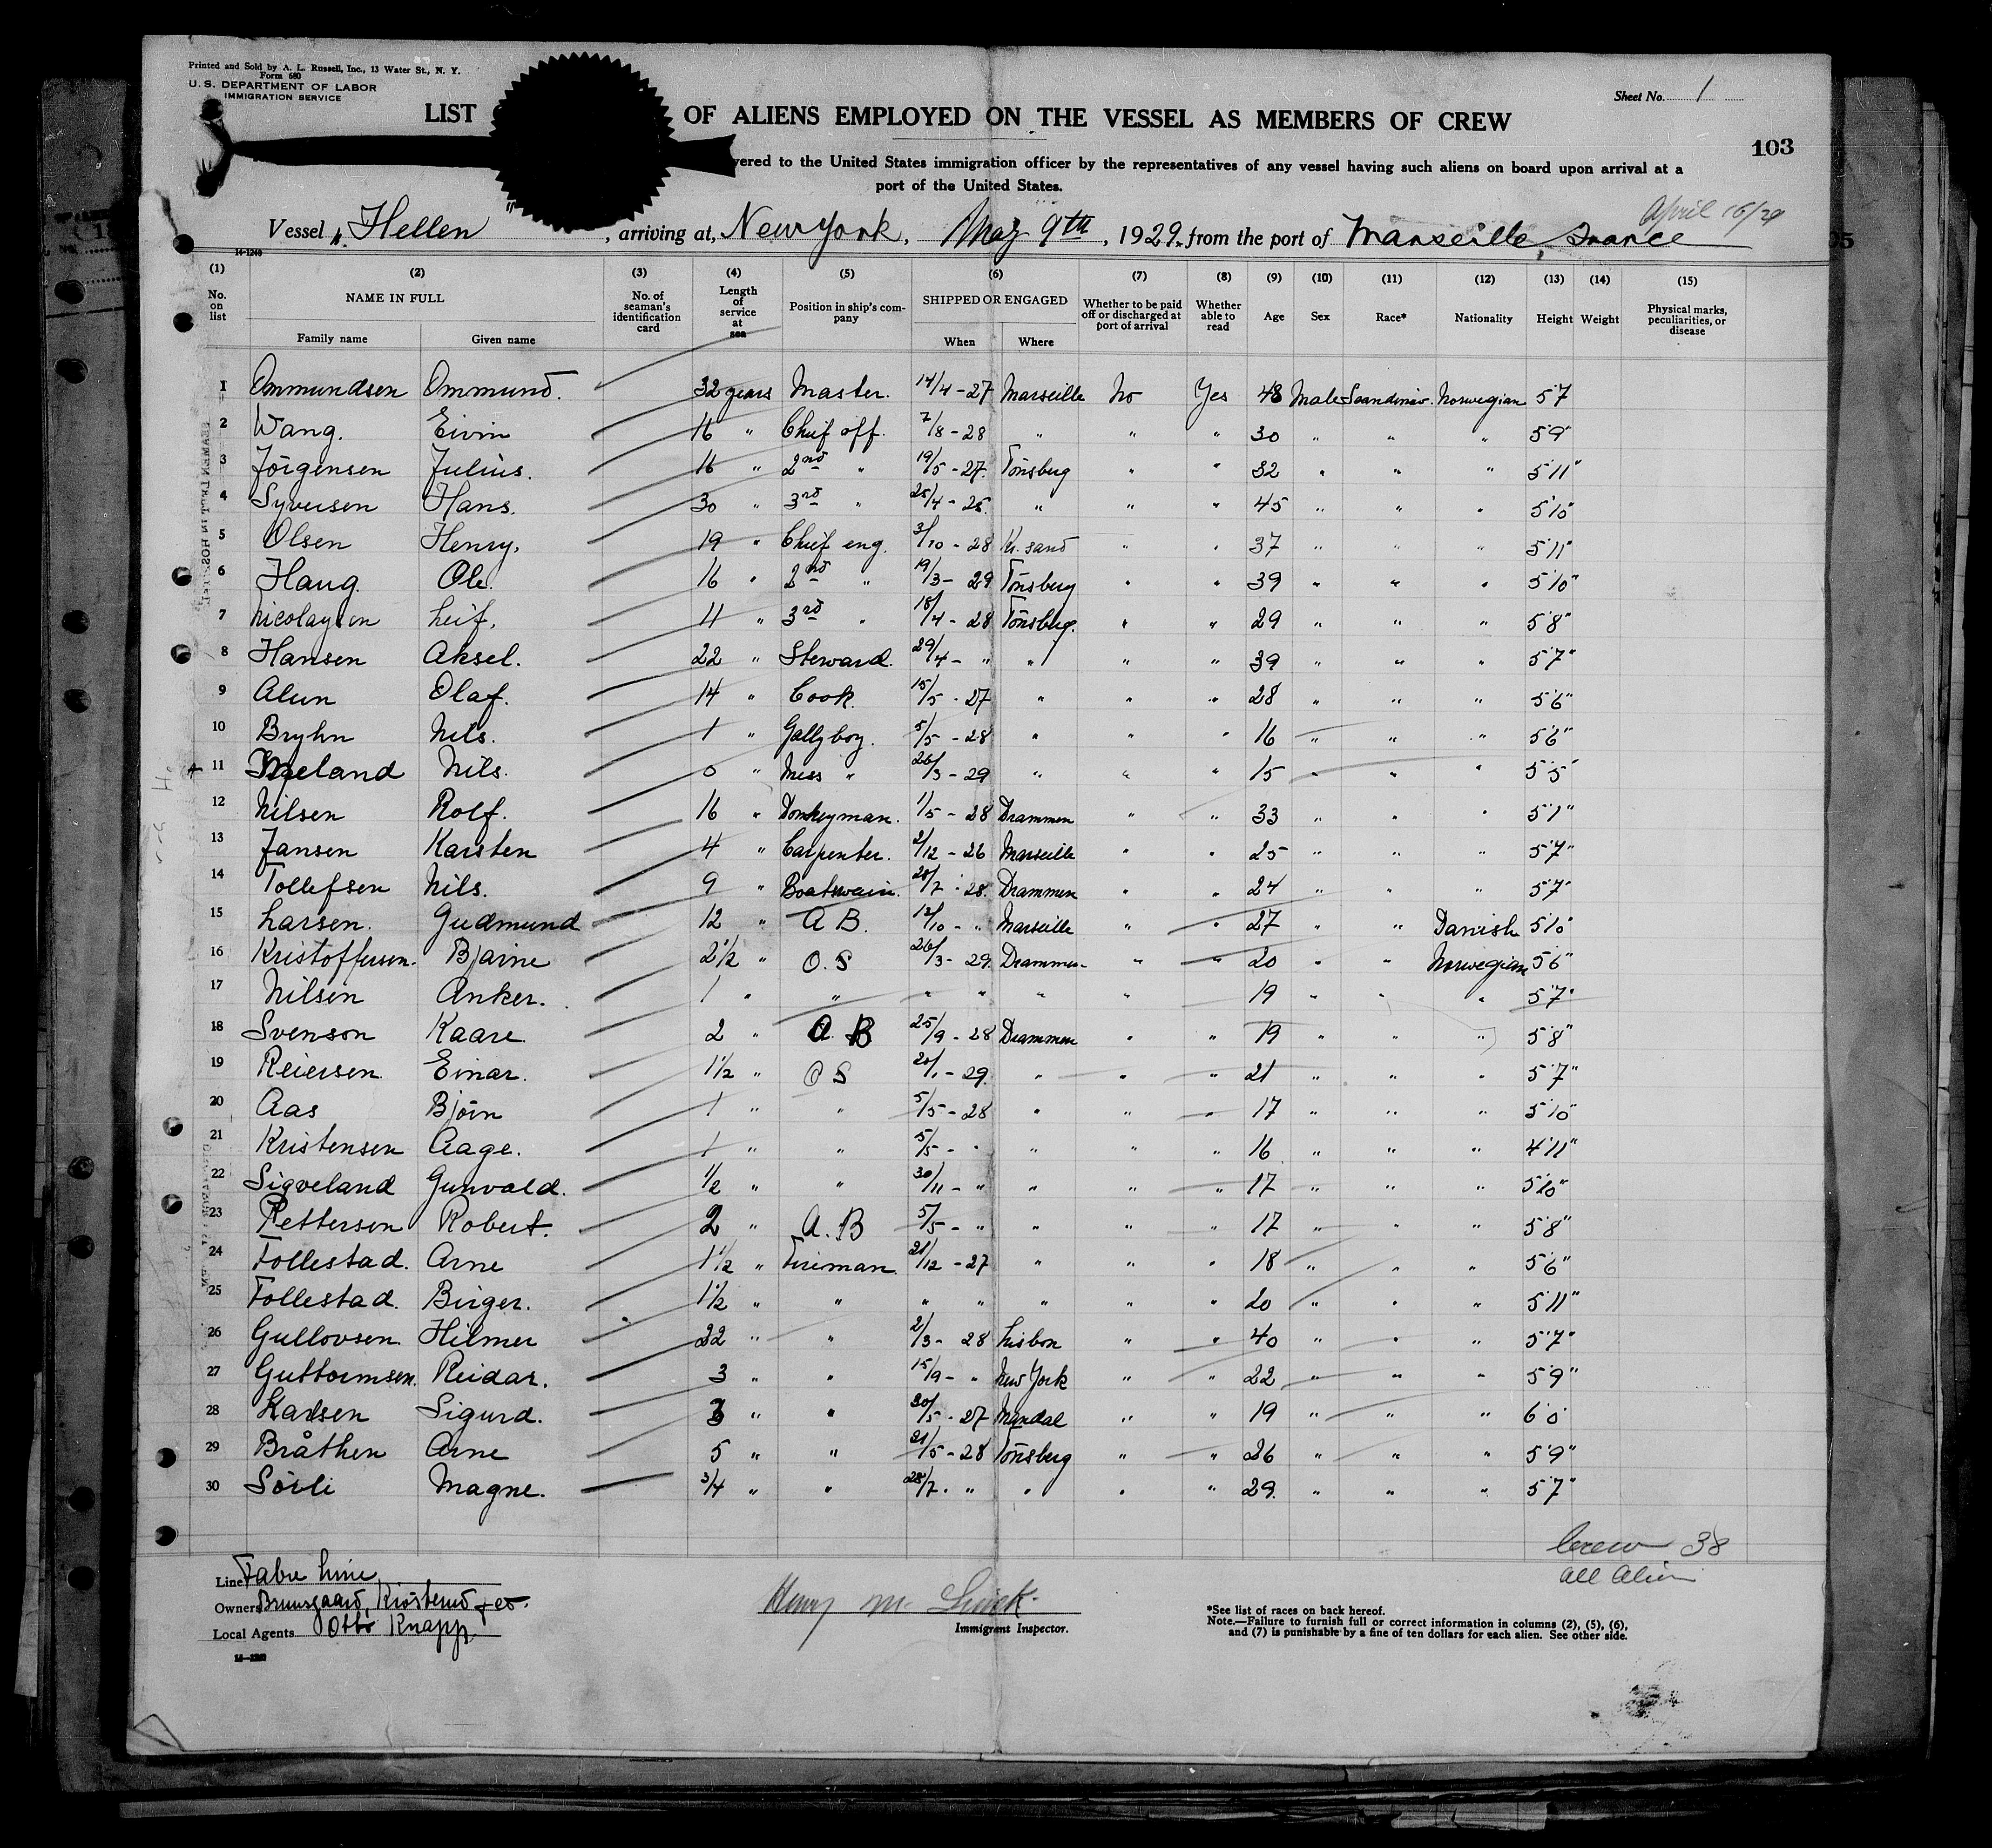 Printed and Sold by A. L. Russell, Inc., 13 Water St., N. Y.
Form 680
U. S. DEPARTMENT OF LABOR
IMMIGRATION SERVICE
Sheet No. 1
LIST OF ALIENS EMPLOYED ON THE VESSEL AS MEMBERS OF CREW
103
vered to the United States immigration officer by the representatives of any vessel having such aliens on board upon arrival at a
port of the United States.
April 16/29
Vessel „Hellen", arriving at, New York, May 9th, 1929, from the port of Marseille, France
14-1240
(1) (2) (3) (4) (5) (6) (7) (8) (9) (10) (11) (12) (13) (14) (15)
No. on list NAME IN FULL No. of seaman's identification card Length of service at sea Position in ship's company SHIPPED OR ENGAGED Whether to be paid off or discharged at port of arrival Whether able to read Age Sex Race* Nationality Height Weight Physical marks, peculiarities, or disease
Family name Given name When Where
1 Ommundsen Ommund. 32 years Master. 14/4-27 Marseille No Yes 48 Male Scandinav. Norwegian 5'7
2 Wang. Eivin 16 " Chief off. 7/8-28 " " " 30 " " " 5'9"
3 Jörgensen Julius. 16 " 2nd " 19/5-27. Tönsberg " " 32 " " " 5'11"
4 Syversen Hans. 30 " 3rd " 25/4-25. " " " 45 " " " 5'10"
5 Olsen Henry. 19 " Chief eng. 3/10-28 Kr. sand " " 37 " " " 5'11"
6 Haug. Ole. 16 " 2nd " 19/3-29 Tönsberg " " 39 " " " 5'10"
7 Nicolaysen Leif. 11 " 3rd " 18/4-28 Tönsberg. " " 29 " " " 5'8"
8 Hansen Aksel. 22 " Steward. 29/4-" " " " 39 " " " 5'7"
9 Alun Olaf. 14 " Cook. 15/5-27 " " " 28 " " " 5'6"
10 Bryhn Nils. 1 " Gallyboy. 5/5-28 " " " 16 " " " 5'6"
11 Nils. 0 " Mess " 26/3-29 " " " 15 " " " 5'5"
12 Nilsen Rolf. 16 " Donkeyman. 1/5-28 Drammen " " 33 " " " 5'7"
13 Jansen Karsten 4 " Carpenter. 2/12-26 Marseille " " 25 " " " 5'7"
14 Tollefsen Nils. 9 " Boatswain. 28/7-28. Drammen " " 24 " " " 5'7"
15 Larsen. Gudmund 12 " A B. 12/10-" Marseille " " 27 " " Danish 5'10"
16 Kristoffersen. Bjarne 2 1/2 " O. S 26/3-29. Drammen " " 20 " " Norwegian 5'6"
17 Nilsen Anker. 1 " " " " " " 19 " " " 5'7"
18 Svenson Kaare. 2 " A. B 25/9-28 Drammen " " 19 " " " 5'8"
19 Reiersen Einar. 1 1/2 " O S 20/1-29. " " " 21 " " " 5'7"
20 Aas Björn 1 " " 5/5-28 " " " 17 " " " 5'10"
21 Kristensen Aage. 1 " " 5/5-" " " " 16 " " " 4'11"
22 Sigveland Gunvald. 1/2 " " 30/11-" " " " 17 " " " 5'10"
23 Pettersen Robert. 2 " A. B 5/5-" " " " 17 " " " 5'8"
24 Follestad. Arne 1 1/2 " Fireman. 21/12-27 " " " 18 " " " 5'6"
25 Follestad. Birger. 1 1/2 " " " " " " " 20 " " " 5'11"
26 Gullovsen. Hilmer 22 " " 2/3-28 Lisbon " " 40 " " " 5'7"
27 Guttormsen. Reidar. 3 " " 15/9-" New York " " 22 " " " 5'9"
28 Karlsen Sigurd. 3 " " 20/5-27 Mandal " " 19 " " " 6'0
29 Bråthen Arne 5 " " 21/5-28 Tönsberg " " 26 " " " 5'9"
30 Sörli Magne. 3/4 " " 28/7-" " " " 29. " " " 5'7"
Crew 38
All Alien
Line Fabre Line
Owners Bruusgaard, Kiösterud & Co.
Local Agents Otto Knapp.
Henry M.
Immigrant Inspector.
*See list of races on back hereof.
Note.—Failure to furnish full or correct information in columns (2), (5), (6),
and (7) is punishable by a fine of ten dollars for each alien. See other side.
14-1240